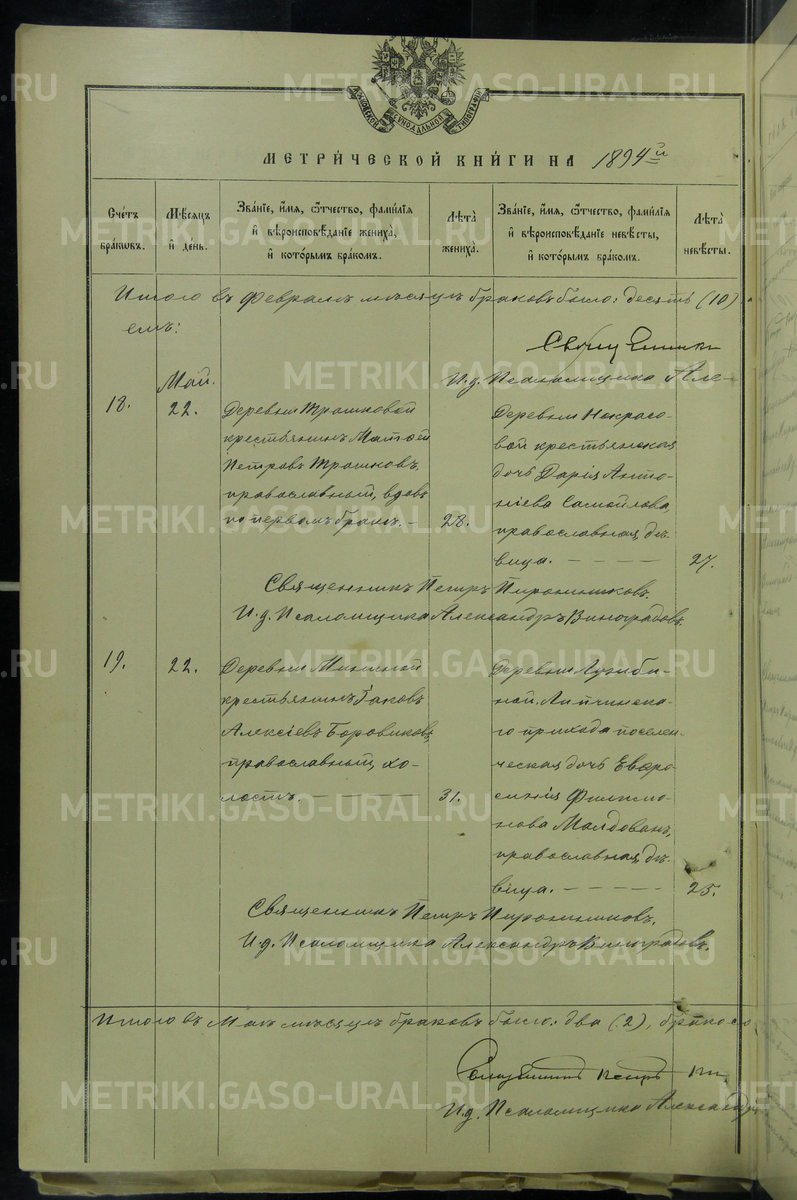 МОСКОВСКОЙ СѴНОДАЛЬНОЙ ТИПОГРАФІИ
МЕТРИ́ЧЕСКОЙ КНИ́ГИ НА 1894й
Сче́тъ бра́ковъ.
Мѣ́сяцъ и҆ де́нь.
Зва́нїе, и҆́мя, ѻ҆́тчество, фамѝлїѧ и҆ вѣроисповѣ́данїе жениха̀, и҆ кото́рымъ бра́комъ.
Лѣ́та жениха̀.
Зва́нїе, и҆́мя, ѻ҆́тчество, фамѝлїѧ и҆ вѣроисповѣ́данїе невѣ́сты, и҆ кото́рымъ бра́комъ.
Лѣ́та невѣ́сты.
Итого въ Февралѣ мѣсяцѣ браковъ было: десять (10)
И.д. Псаломщика Але-
Май.
18.
22.
Деревни Трошковой
крестьянинъ Матѳей
Петровъ Трошковъ,
православный, вдовъ
по первомъ бракѣ. —
28.
Деревни Некрасо-
вой крестьянская
дочь Дарія Анто-
ніева Самойлова,
православная, дѣ-
вица. — — — —
27.
Священникъ Петръ
И.д. Псаломщика Александръ Виноградовъ.
19.
22.
Деревни
крестьянинъ Іаковъ
Алексіевъ Боровиковъ,
православный, хо-
лостъ. ———
31.
Деревни
ной, Липчинска-
го прихода поселен-
ческая дочь Евфро-
синія Филимо-
нова Молдованъ,
православная, дѣ-
вица. — — — —
25.
Священникъ Петръ
И.д. Псаломщика Александръ Виноградовъ.
Итого въ Маѣ мѣсяцѣ браковъ было: два (2),
Священникъ Петръ
И.д. Псаломщика Александр
METRIKI.GASO-URAL.RU